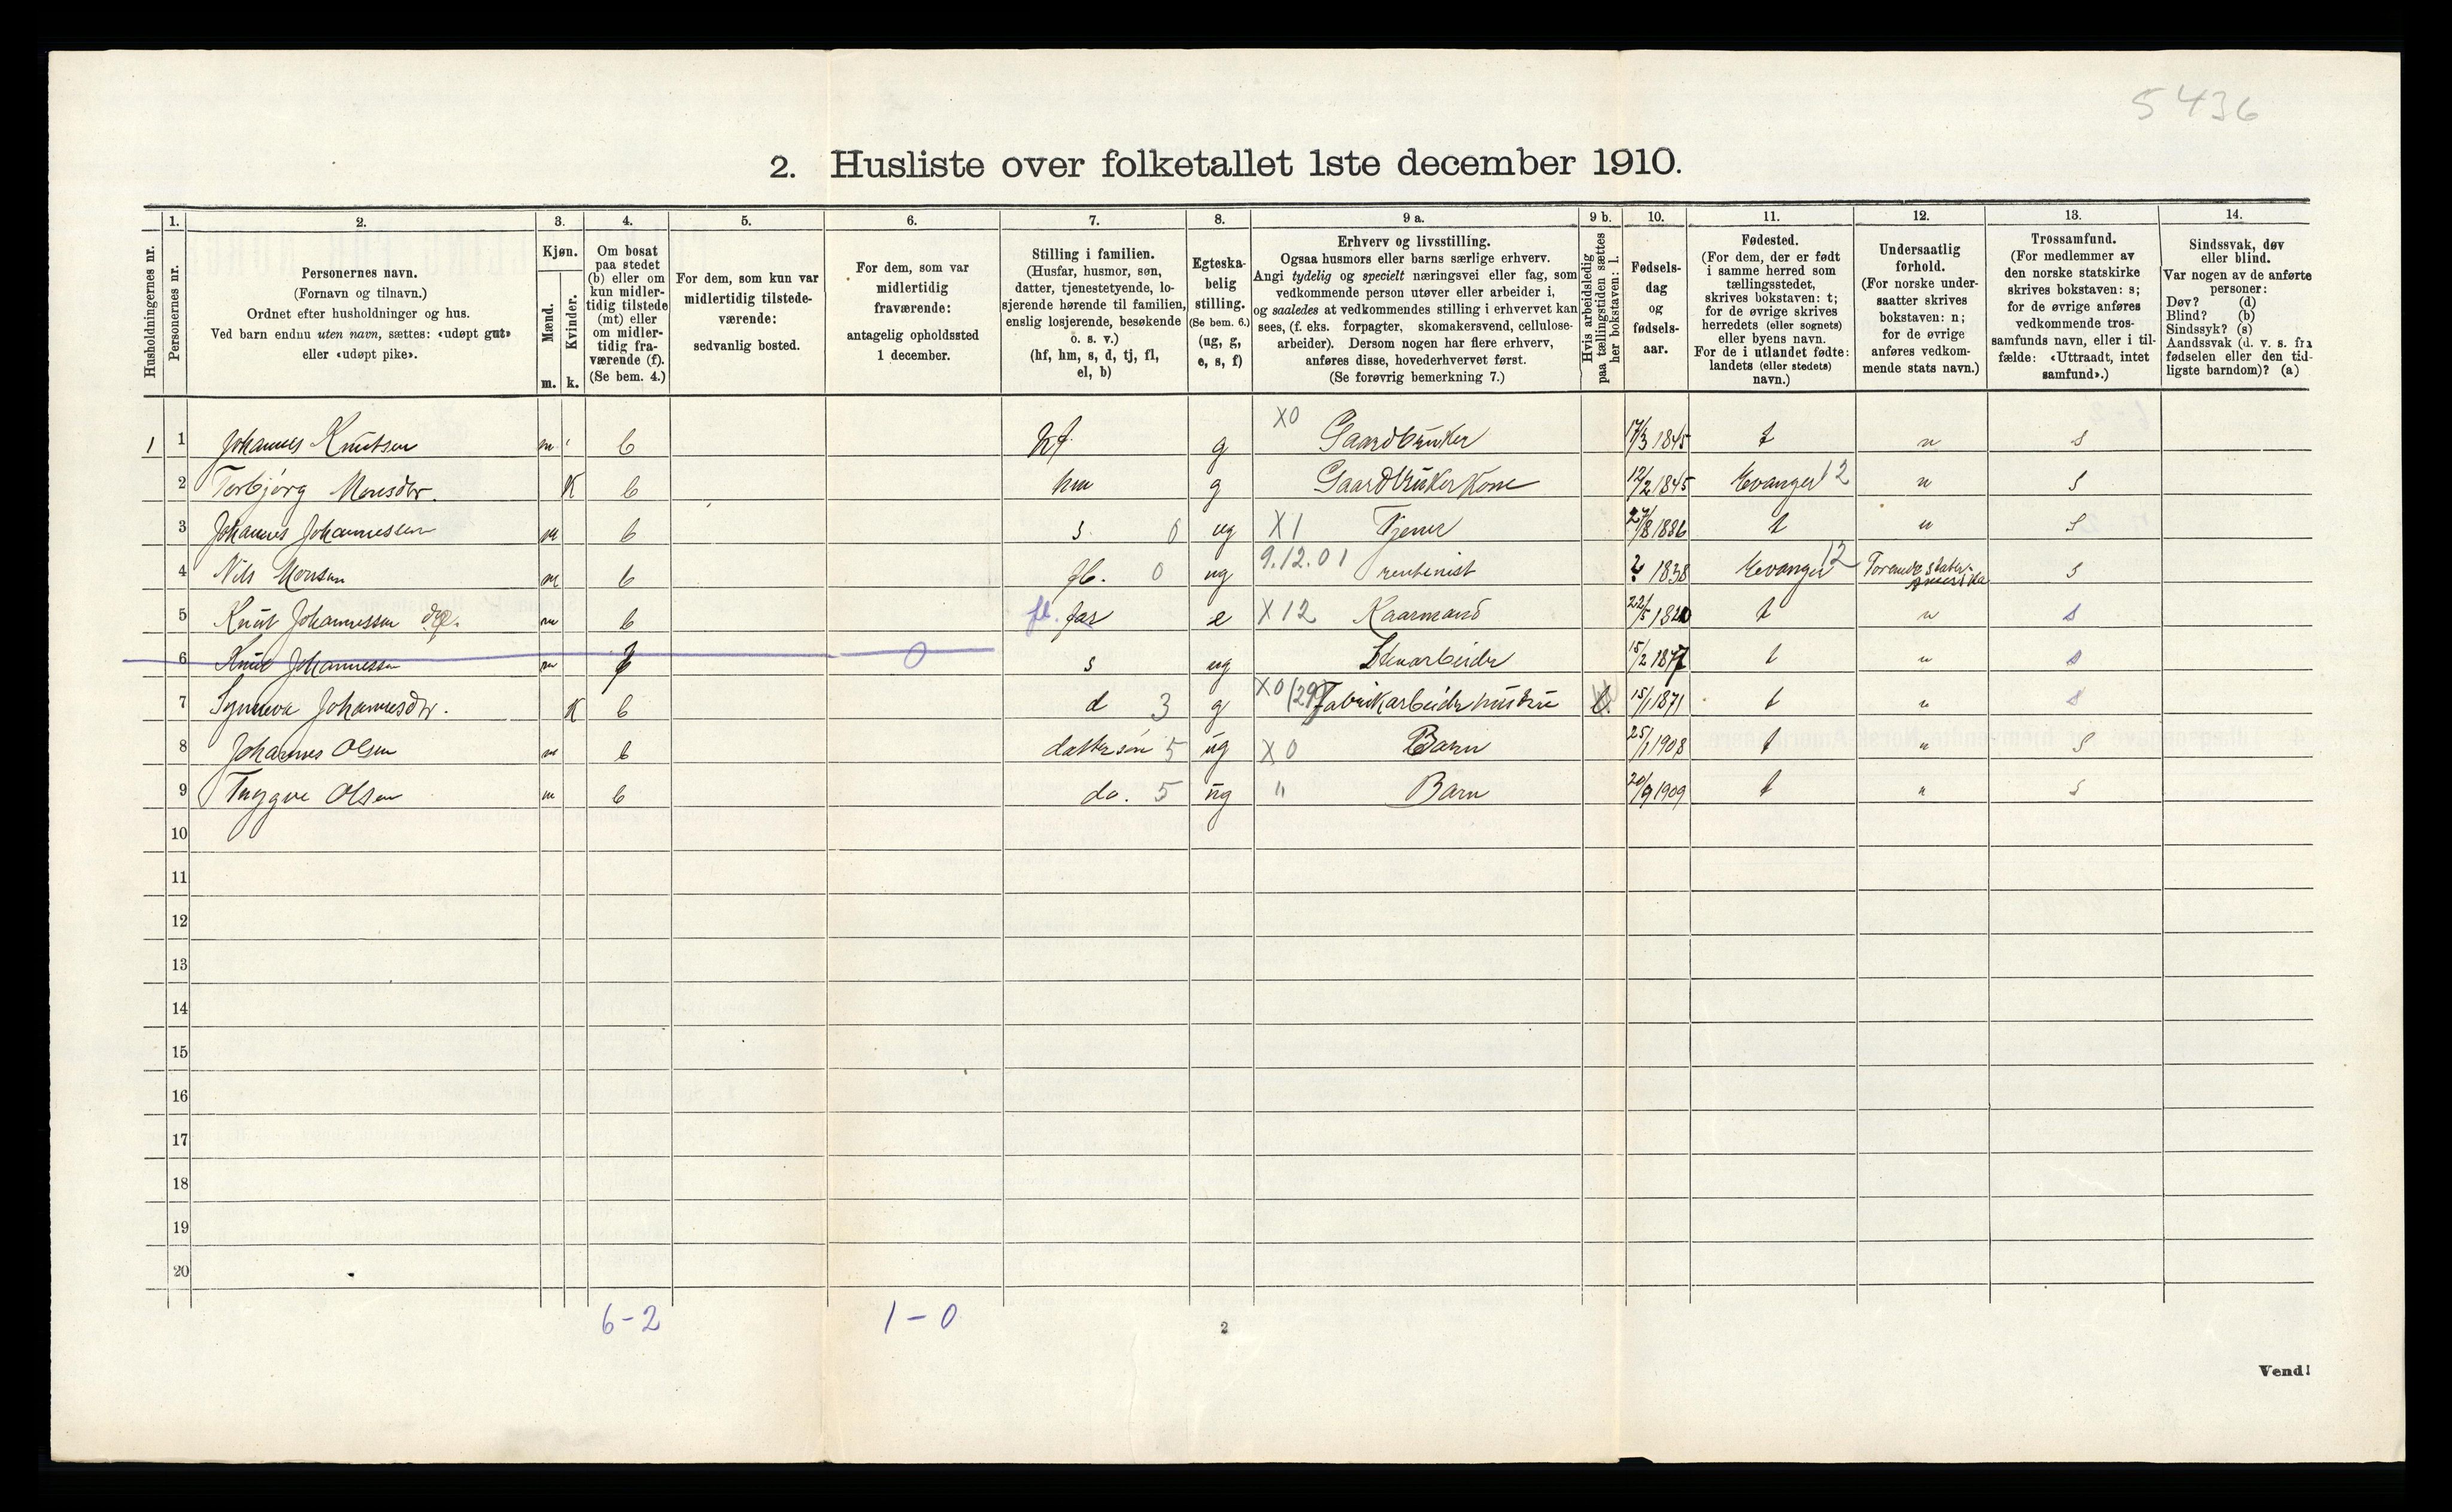 5436
2. Husliste over folketallet 1ste december 1910.
Husholdningernes nr.
1.
Personernes nr.
2.
Personernes navn.
(Fornavn og tilnavn.)
Ordnet efter husholdninger og hus.
Ved barn endnu uten navn, sættes: «udøpt gut»
eller «udøpt pike».
3.
Kjøn.
Mænd.
m.
Kvinder.
k.
4.
Om bosat
paa stedet
(b) eller om
kun midler-
tidig tilstede
(mt) eller
om midler-
tidig fra-
værende (f).
(Se bem. 4.)
5.
For dem, som kun var
midlertidig tilstede-
værende:
sedvanlig bosted.
6.
For dem, som var
midlertidig
fraværende:
antagelig opholdssted
1 december.
7.
Stilling i familien.
(Husfar, husmor, søn,
datter, tjenestetyende, lo-
sjerende hørende til familien,
enslig losjerende, besøkende
o. s. v.)
(hf, hm, s, d, tj, fl,
el, b)
8.
Egteska-
belig
stilling.
(Se bem. 6.)
(ug, g,
e, s, f)
9 a.
Erhverv og livsstilling.
Ogsaa husmors eller barns særlige erhverv.
Angi tydelig og specielt næringsvei eller fag, som
vedkommende person utøver eller arbeider i,
og saaledes at vedkommendes stilling i erhvervet kan
sees, (f. eks. forpagter, skomakersvend, cellulose-
arbeider). Dersom nogen har flere erhverv,
anføres disse, hovederhvervet først.
(Se forøvrig bemerkning 7.)
9 b.
Hvis arbeidsledig
paa tællingstiden sættes
her bokstaven: l.
10.
Fødsels-
dag
og
fødsels-
aar.
11.
Fødested.
(For dem, der er født
i samme herred som
tællingsstedet,
skrives bokstaven: t;
for de øvrige skrives
herredets (eller sognets)
eller byens navn.
For de i utlandet fødte:
landets (eller stedets)
navn.)
12.
Undersaatlig
forhold.
(For norske under-
saatter skrives
bokstaven: n;
for de øvrige
anføres vedkom-
mende stats navn.)
13.
Trossamfund.
(For medlemmer av
den norske statskirke
skrives bokstaven: s;
for de øvrige anføres
vedkommende tros-
samfunds navn, eller i til-
fælde: «Uttraadt, intet
samfund».)
14.
Sindssvak, døv
eller blind.
Var nogen av de anførte
personer:
Døv? (d)
Blind? (b)
Sindssyk? (s)
Aandssvak (d. v. s. fra
fødselen eller den tid-
ligste barndom)? (a)
1 1 Johannes Knutsen m b hf g X0 Gaardbruker 17/3 1845 t n s
2 Torbjørg Monsdtr. K b hm g Gaardbrukerkone 12/2 1845 Evanger 12 n s
3 Johannes Johannessen m b s 0 ug X1 Tjener 27/8 1886 t n s
4 Nils Monsen m b fl. 0 ug 9.12.01 rentenist ? 1838 Evanger 12 Forenede stater Amerika s
5 Knut Johannessen m b fl. far e X12 Kaarmand 22/5 1820 t n s
6 Knut Johannessen m f 0 s ug 15/2 1877 t n s
7 Synneva Johannesdtr. K b d 3 g X0 (29) Fabrikarbeiderhustru 15/1 1871 t n s
8 Johannes Olsen m b dattersøn 5 ug X0 Barn 25/1 1908 t n s
9 Trygve Olsen m b do. 5 ug " Barn 20/9 1909 t n s
10
11
12
13
14
15
16
17
18
19
20
6-2 1-0
2
Vend!